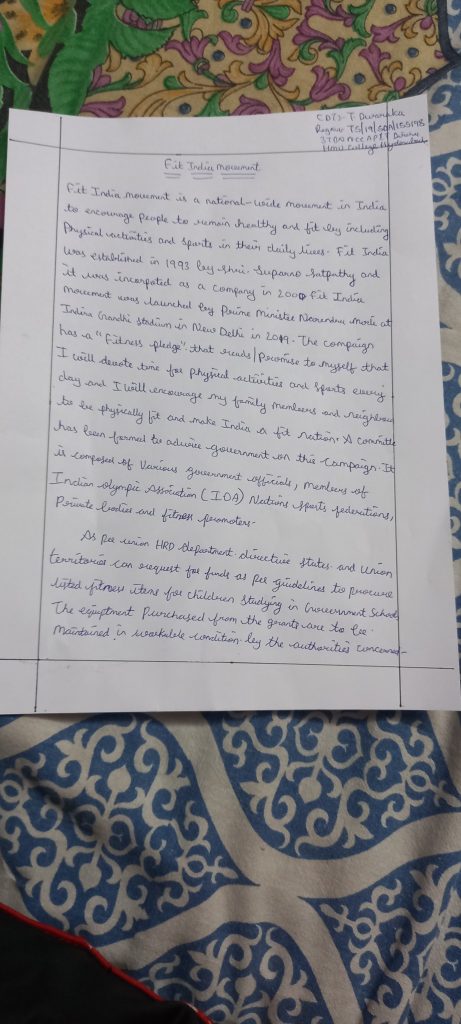 CDT:- T. Dwaraka
Regno:- TS/19/SDN/155198
Fit India movement
Fit India movement is a national-wide movement in India
to encourage people to remain healthy and fit by including
Physical activities and sports in their daily lives. Fit India
was established in 1993 by shri. Suparno Satpathy and
it was incorpated as a company in 2000 Fit India
movement was launched by Prime Minister Narendra modi at
Indira Gandhi stadium in New Delhi in 2019. The compaign
has a "fitness pledge" that reads/Promise to myself that
I will devote time for physical activities and sports every
day and I will encourage my family members and neighbou
to be physically fit and make India a fit nation. A committe
has been formed to advice government on this Campaign. It
is composed of Various government officials, members of
Indian olympic Association (IOA) Nations sports federations,
Private bodies and fitness promoters.
As per union HRD department directive states and Union
territories can request for funds as per guidelines to procure
listed fitness items for children studying in Government School
The equptment Purchased from the grants are to be
maintained in workable condition by the authorities concerned.